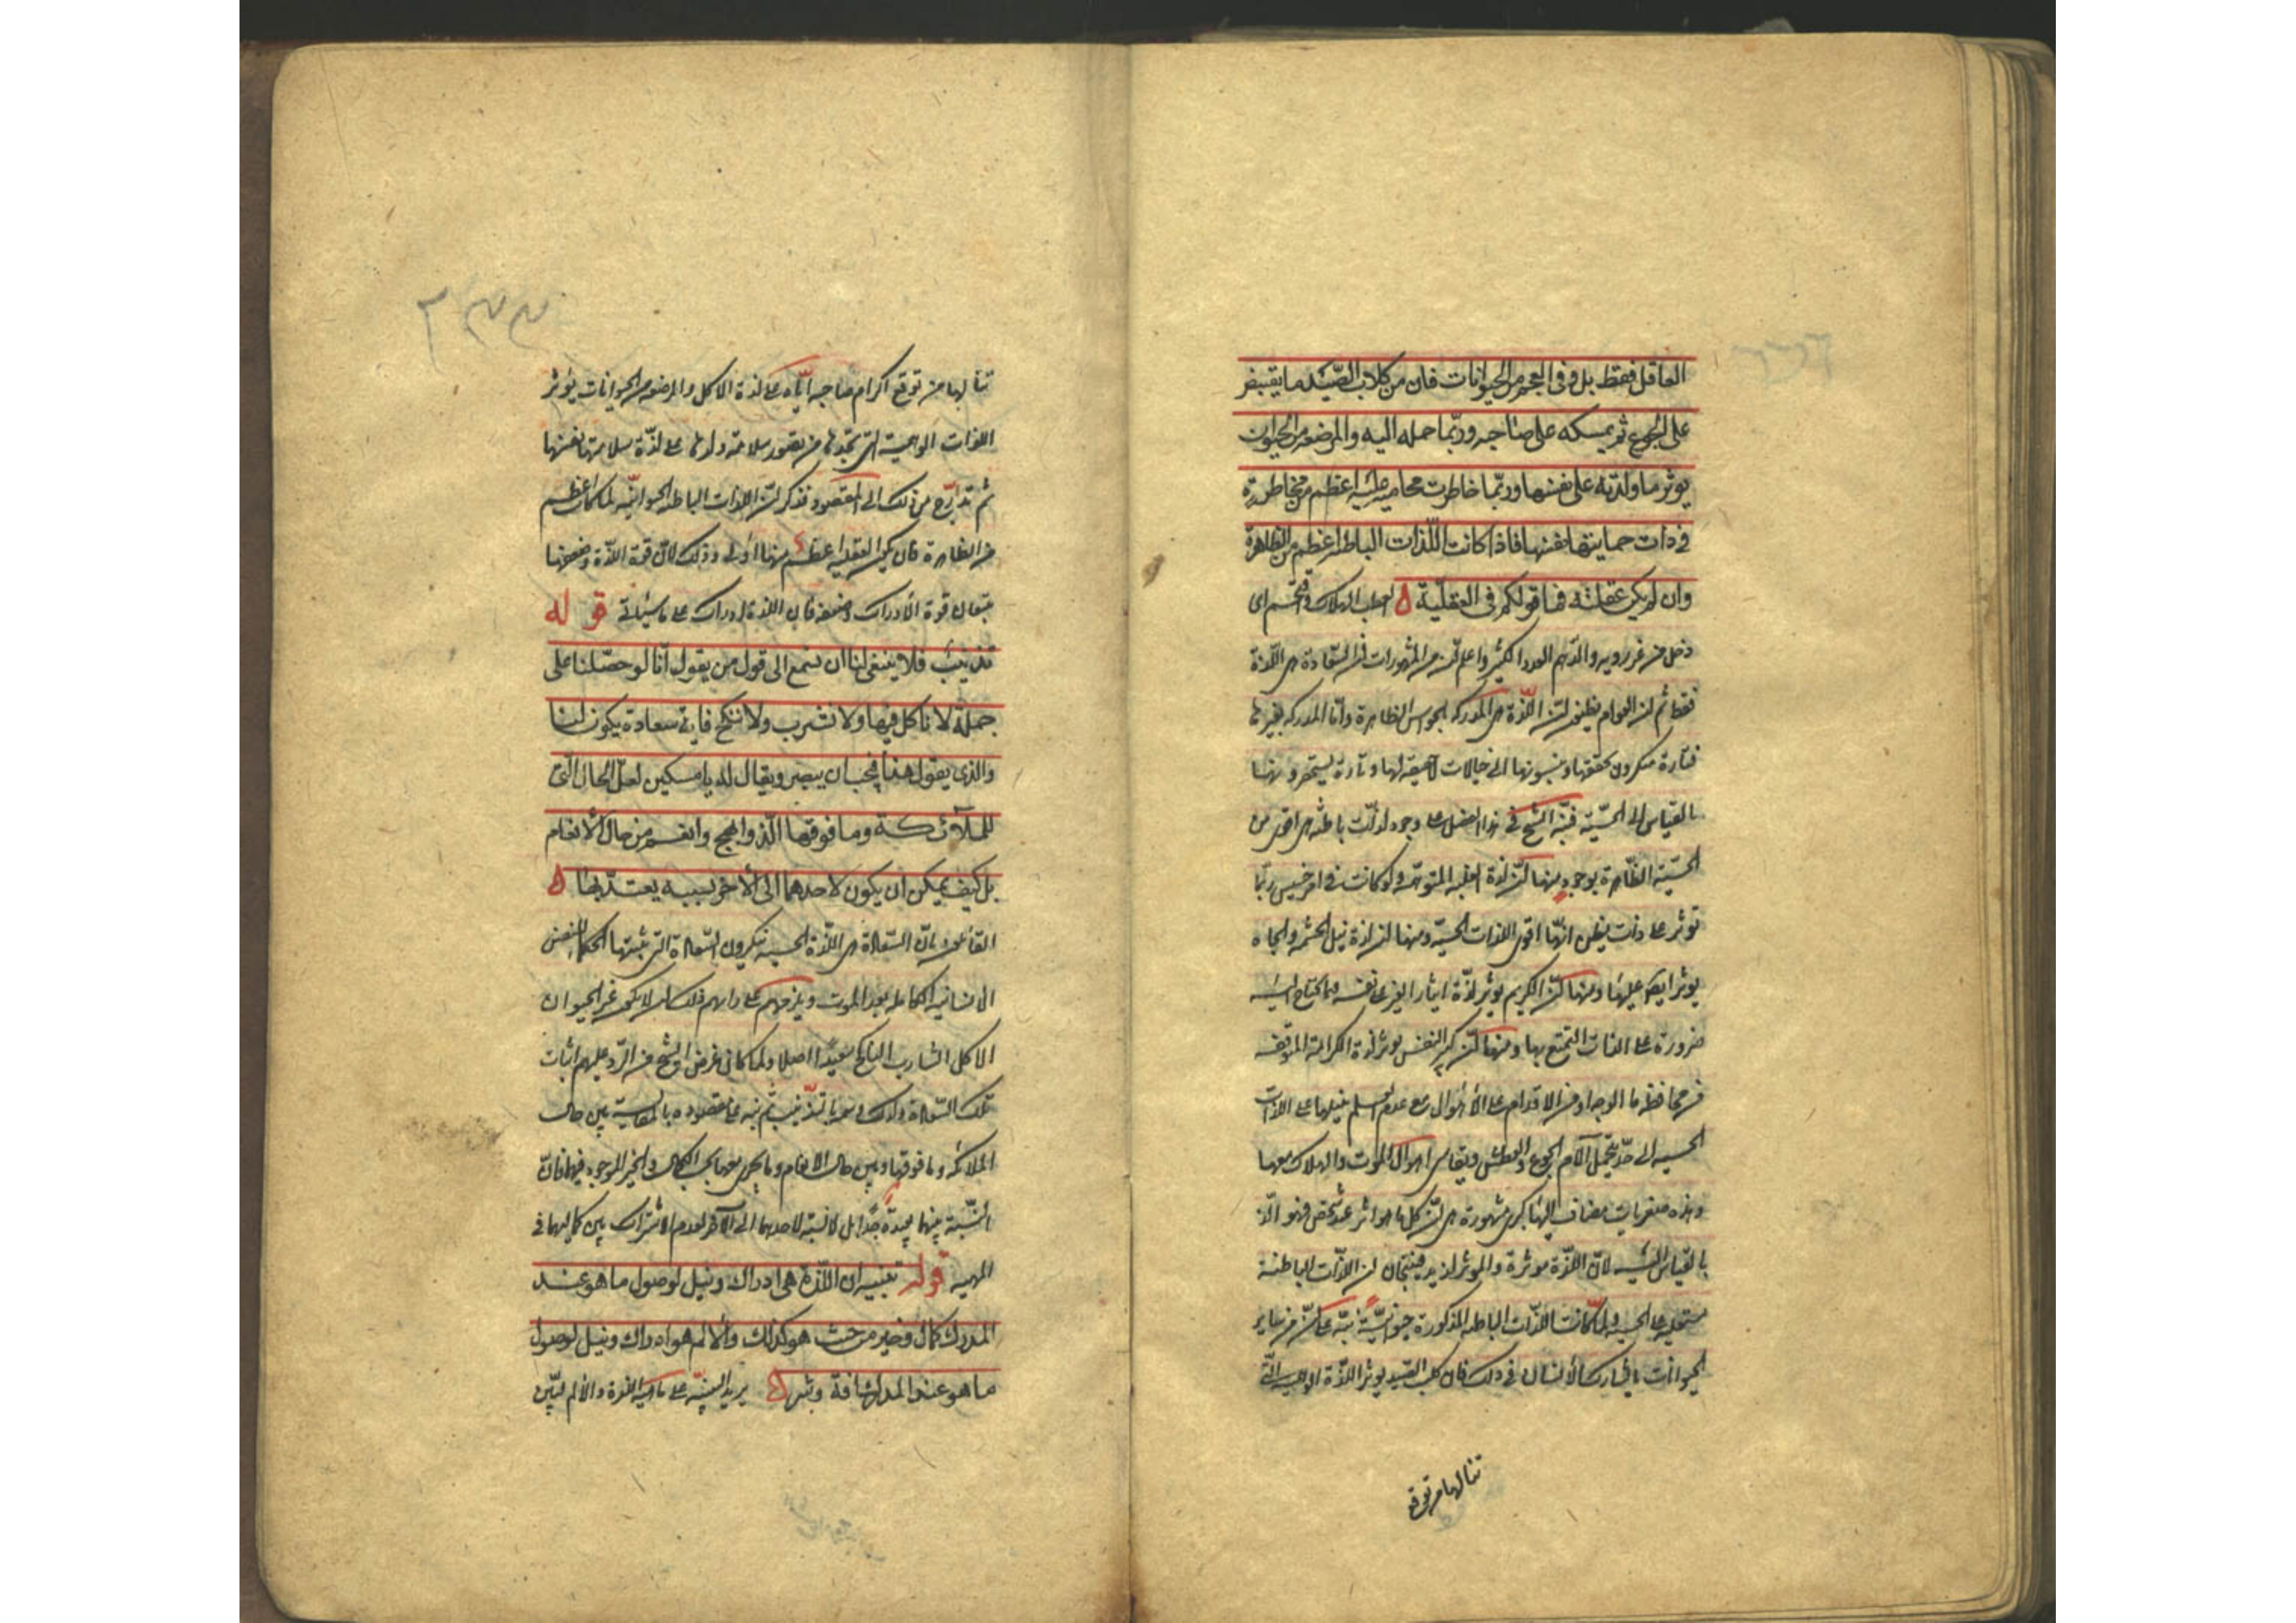 العاقل فقط بل وفى العجم من الحيوانات فان من كلاب الصّيد ما يقتنص
على الجوع ثم يمسكه على صاحبه وربّما حمله اليه والمرضعة من الحيوان
يوثر ما ولدته على نفسها وربّما خاطرت محامية عليه اعظم من مخاطرته
فى ذات حمايتها نفسها فاذا كانت اللّذات الباطنة اعظم من الظاهرة
وان لم يكن عقليّة فما قولكم فى العقليّة ه العطب الهلاك واقتحم اى
دخل من غير رويه والدّهم العدد الكثير واعلم انّ من المشهورات انّ السّعادة هى اللّذة
فقط ثم انّ العوام يظنون انّ اللّذة هى المدركه بالحواس الظاهرة وامّا المدركه بغيرها
فتارة ينكرون تحققها وينسبونها الى خيالات لا حقيقة لها وتارة يستحقرونها
بالقياس الى الحسّيّة فنبّه الشيخ فى هذا الفصل على وجود لذّات باطنة هى اقوى من
الحسّيّة الظّاهرة بوجوه منها انّ لذة الغلبه المتوهّمة ولو كانت فى امر خسيس ربّما
توثر على لذّات يظن انّها اقوى اللذات الحسّية ومنها انّ لذة نيل الحشمة والجاه
يوثر ايضا عليها ومنها انّ الكريم يوثر لذّة ايثار الغير على نفسه فيما يحتاج اليه
ضرورة على لذات التمتّع بها ومنها انّ كبير النفس يوثر لذة الكرامة المتوقعه
من محافظة ماء الوجه او من الاقدام على الأهوال مع عدم العلم بنيلها على اللذات
الحسيه الى حدّ يتحمّل آلام الجوع والعطش ويقاسى اهوال الموت والهلاك معها
وهذه صغريات مضاف اليها كبرى مشهورة هى انّ كل ما هو آثر عند شخص فهو الذّ
بالقياس اليه لانّ اللّذة موثرة والموثر لذيذ فينتجان انّ اللذّات الباطنة
مستعليه على الحسيه ولمّا كانت اللذّات الباطنه المذكورة حيوانيّة نبّه على انّ من سائر
الحيوانات ما يشارك الانسان فى ذلك فان كلب الصّيد يوثر اللذّة الوهميه الّتى
تنالها من توقع
تنالها من توقع اكرام صاحبه ايّاه على لذة الاكل والمرضعه من الحيوانات يوثر
اللذات الوهمية التى تجدها من تصور سلامة ولدها على لذّة سلامتها نفسها
ثم تدرّج من ذلك الى المقصود فذكر انّ اللذات الباطنه الحيوانيّه لمّا كان اعظم
من الظاهرة فان يكون العقليه اعظم منها اولى وذلك لانّ قوة اللّذة وضعفها
يتبعان قوة الأدراك وضعفه فان اللذة ادراك على ما سيأتى قوله
تذنيب فلا ينبغى لنا ان نستمع الى قول من يقول انّا لو حصّلنا على
جملة لا ناكل فيها ولا نشرب ولا ننكح فايّة سعادة يكون لنا
والذى يقول هذا فيجب ان يبصر ويقال له يا مسكين لعلّ الحال الّتى
للملآئكة وما فوقها الّذ وابهج وانعم من حال الأنعام
بل كيف يمكن ان يكون لاحدهما الى الأخر نسبة يعتدّ بها ه
القائلون بانّ السّعادة هى اللّذة الحسيه ينكرون السّعادة التى يثبتها الحكماء للنفس
الانسانيه الكامله بعد الموت ويلزمهم على رايهم ذلك ان لا يكون غير الحيوان
الاكل الشارب الناكح سعيدا اصلا ولما كان غرض الشيخ من الردّ عليهم اثبات
تلك السّعادة وسمّى بالتذنيب ثم نبه على مقصوده بالمقايسة بين حال
الملائكه وما فوقها وبين حال الانعام وما يجرى مجراها بحسب الكمال والخير الموجود فيهما فانّ
النّسبة بينهما بعيدة جدّا بل لا نسبة لاحدهما الى الآخر لعدم الاشتراك بين كماليهما فى
المهيه قوله تنبيه ان اللّذة هى ادراك ونيل لوصول ما هو عند
المدرك كمال وخير من حيث هو كذلك والألم هو ادراك ونيل لوصول
ما هو عند المدرك آفة وشر ه يريد التنبيه على ماهية اللذة والألم ليتبيّن